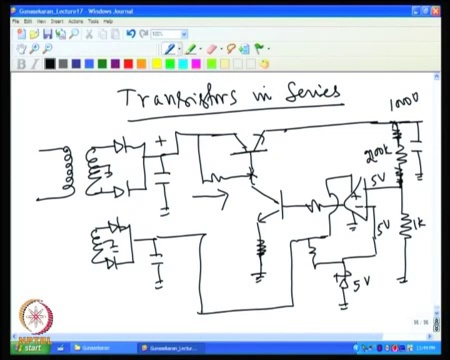 Gunasekaran_Lecture17 - Windows Journal
File Edit View Insert Actions Tools Help
100%
B I
Transistors in Series
1000V
200k
5V
5V
1k
5V
NPTEL
start
Gunasekaran
Gunasekaran_Lectu...